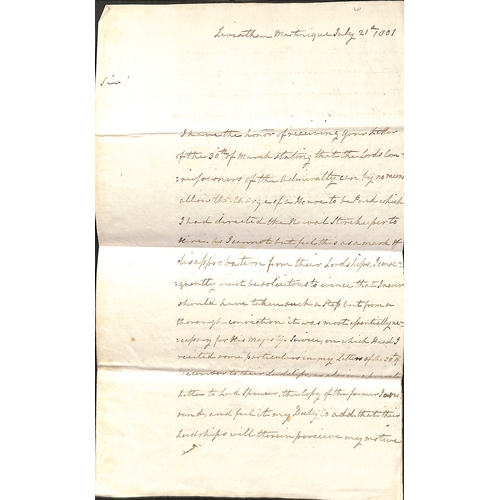 Leviathan Martinique July 21st 1801
Sir
I have the honor of receiving your Letter
of the 30th of March stating that the Lords Com-
=missioners of the Admiralty can by no means
allow the Charge of a House to be Paid which
I had directed the Naval Storekeeper to
Hire. As I cannot but feel this as a mark of
disapprobation from their Lordships, I conse-
quently must be solicitous to evince that I never
should have taken such a Step but from a
thorough conviction it was most essentially ne-
cessary for His Majestys Service, on which Head I
recited some particulars in my Letters of the 30th of
December to their Lordships, as also in a
Letter to Lord Spencer, the Copy of the former I now
send, and feel it my Duty to add that their
Lordships will therein perceive my motive